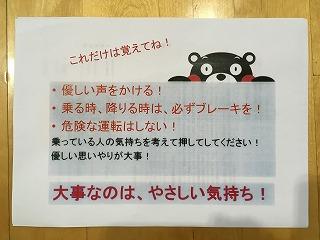 これだけは覚えてね！
・優しい声をかける！
・乗る時、降りる時は、必ずブレーキを！
・危険な運転はしない！
乗っている人の気持ちを考えて押してしてください！
優しい思いやりが大事！
大事なのは、やさしい気持ち！